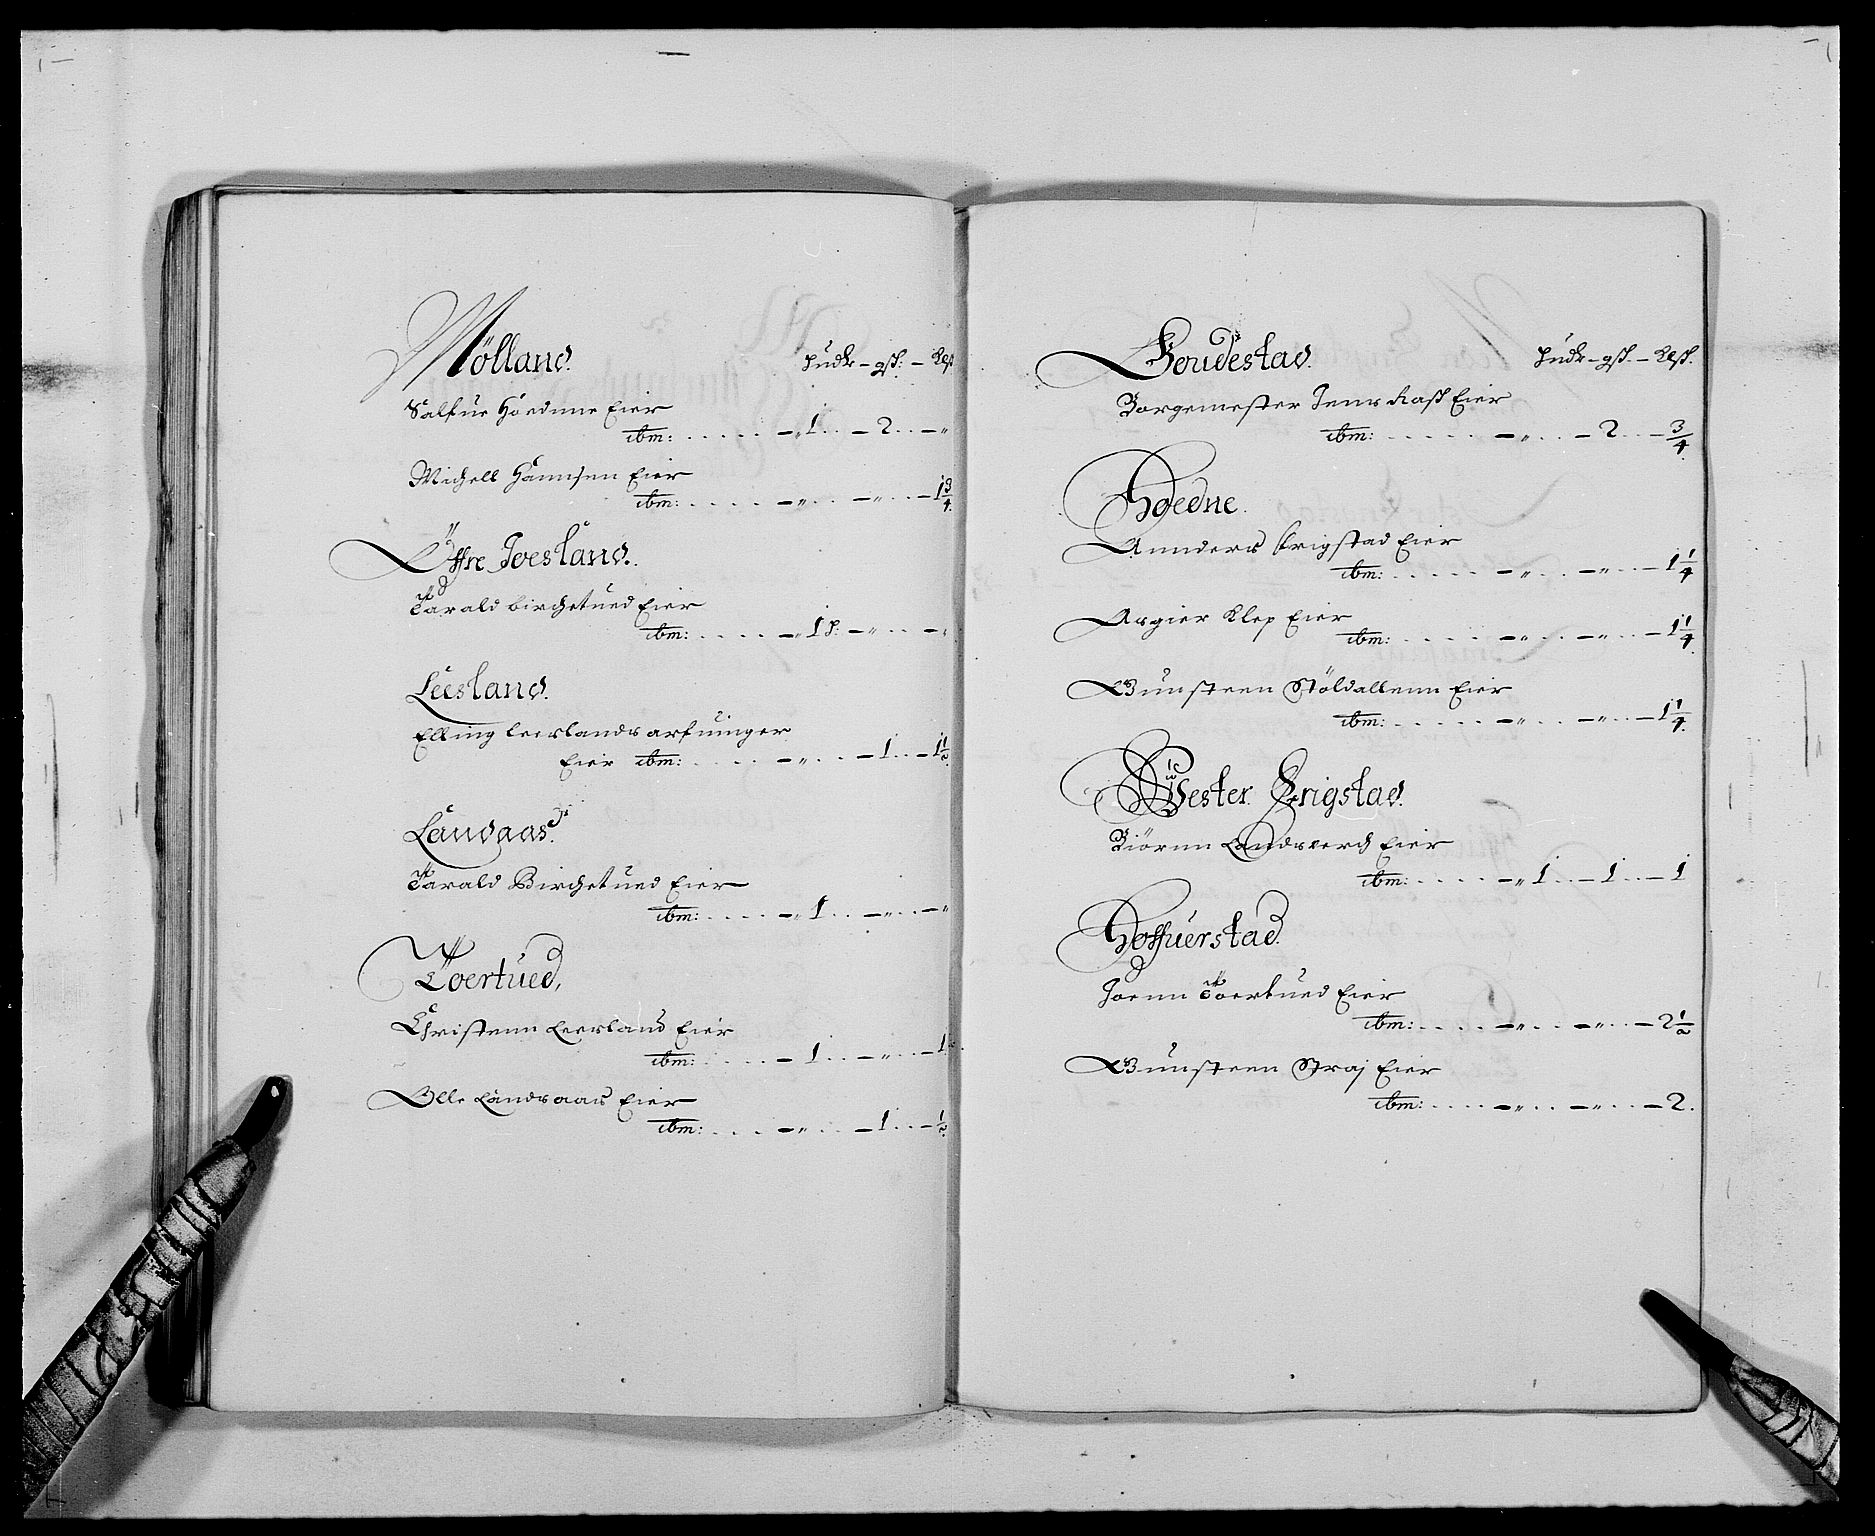 Mölland. Hudr – qß: – Kalß
Salfue Höednne Eier
ibm: . . . . . – „ 1 . . – 2 . . – „
Michell Hannsen Eier
ibm: . . . . . – „ . . . – „ . . – 1 3/4
Öffre Joesland.
Tarald Birchetued Eier
ibm: . . . . – „ 1 ß: – „ . . – „
Leesland.
Elling Leeslands arfuinger
Eier ibm: . . . . . – „ . . – 1 . . – 1 1/2
Landaas.
Tarald Birchetued Eier
ibm: . . . . . – „ 1 . . – „ . . – „
Toertued,
Christenn Leesland Eier
ibm: . . . . . – 1 . . – „ . . – 1
Olle Landaas Eier
ibm: . . . . – „ . . – 1 . . – 1/2
Goudestad. Hudr – qß. – Kalß.
Borgemester Jens Rasß Eier
ibm: . . . . . – „ . . – 2 . . – 3/4
Hoedne.
Annders Erigstad Eier
ibm: . . . . . – „ . . – „ . . – 1 1/4
Asgier Klep Eier
ibm: . . . . . – „ . . – „ . . – 1 1/4
Gunsteen Stöldallenn Eier
ibm: . . . . . – „ . . – „ . . – 1 1/4
Wester Erigstad.
Biörnn Landsverch Eier
ibm: . . . . – „ 1 . . – 1 . . – 1
Hoffuerstad.
Joenn Toertued Eier
ibm: . . . . – „ . . – „ . . – 2 1/2
Gunsteen Straj Eier
ibm: . . . . – „ . . – „ . . – 2.